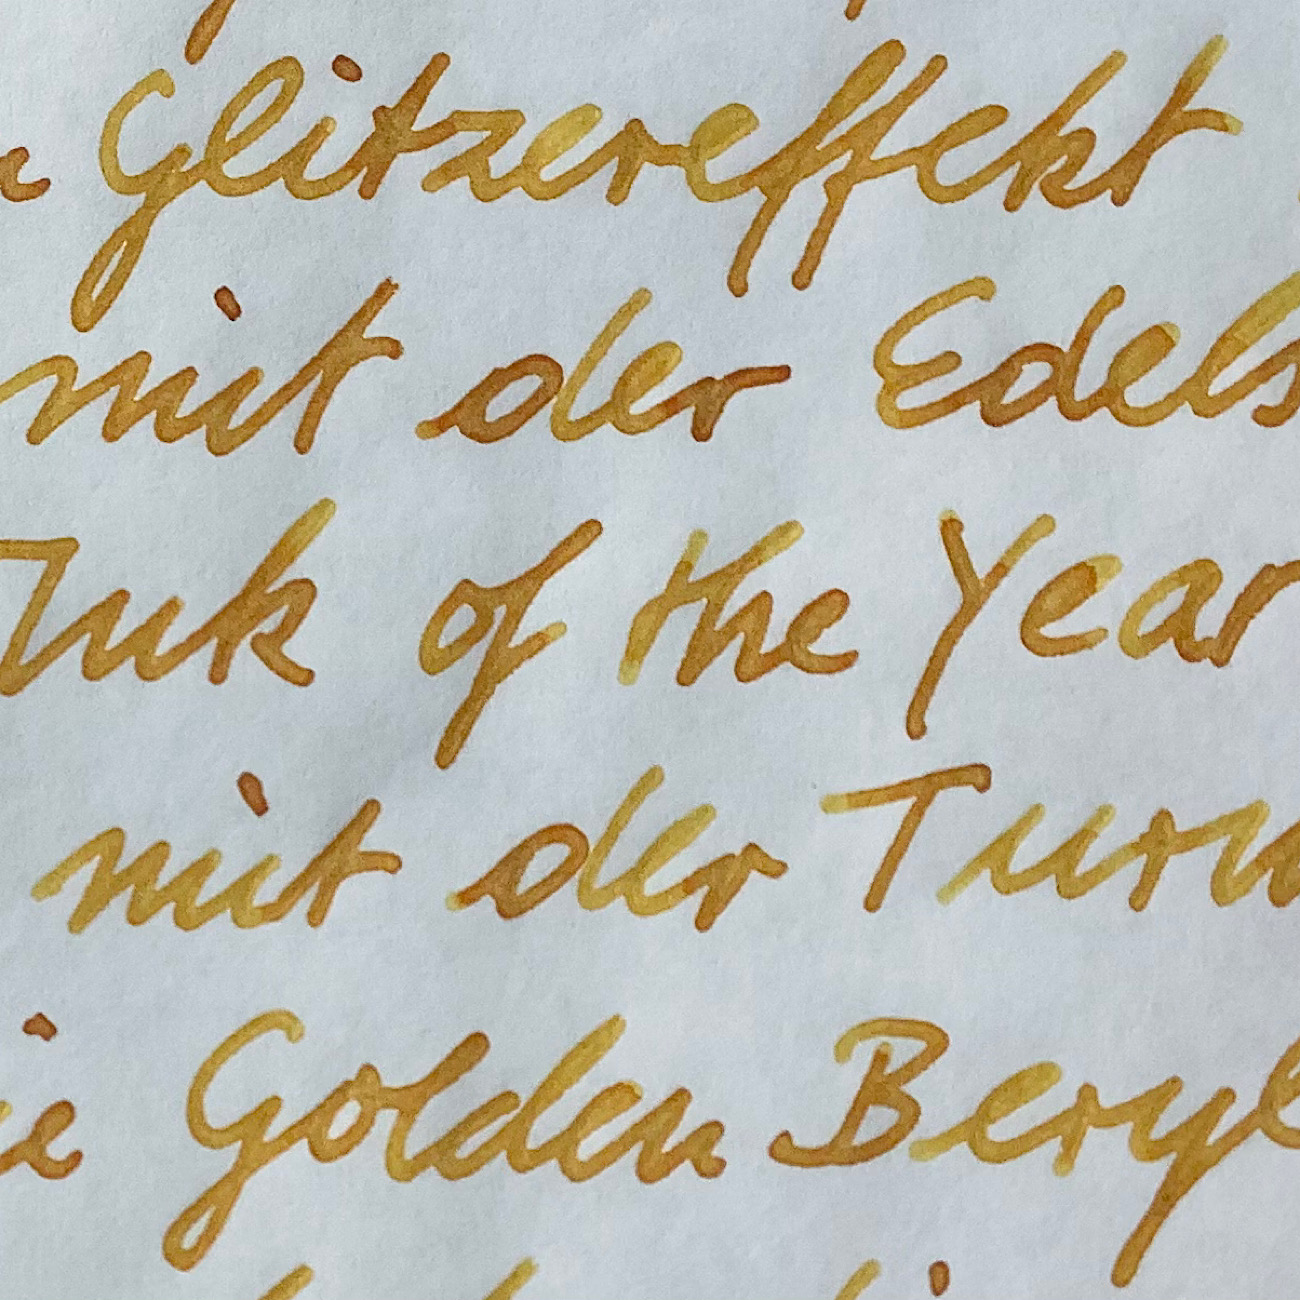 Glitzereffekt
mit der Edels
Ink of the Year
mit der Turm
ie Golden Beryl